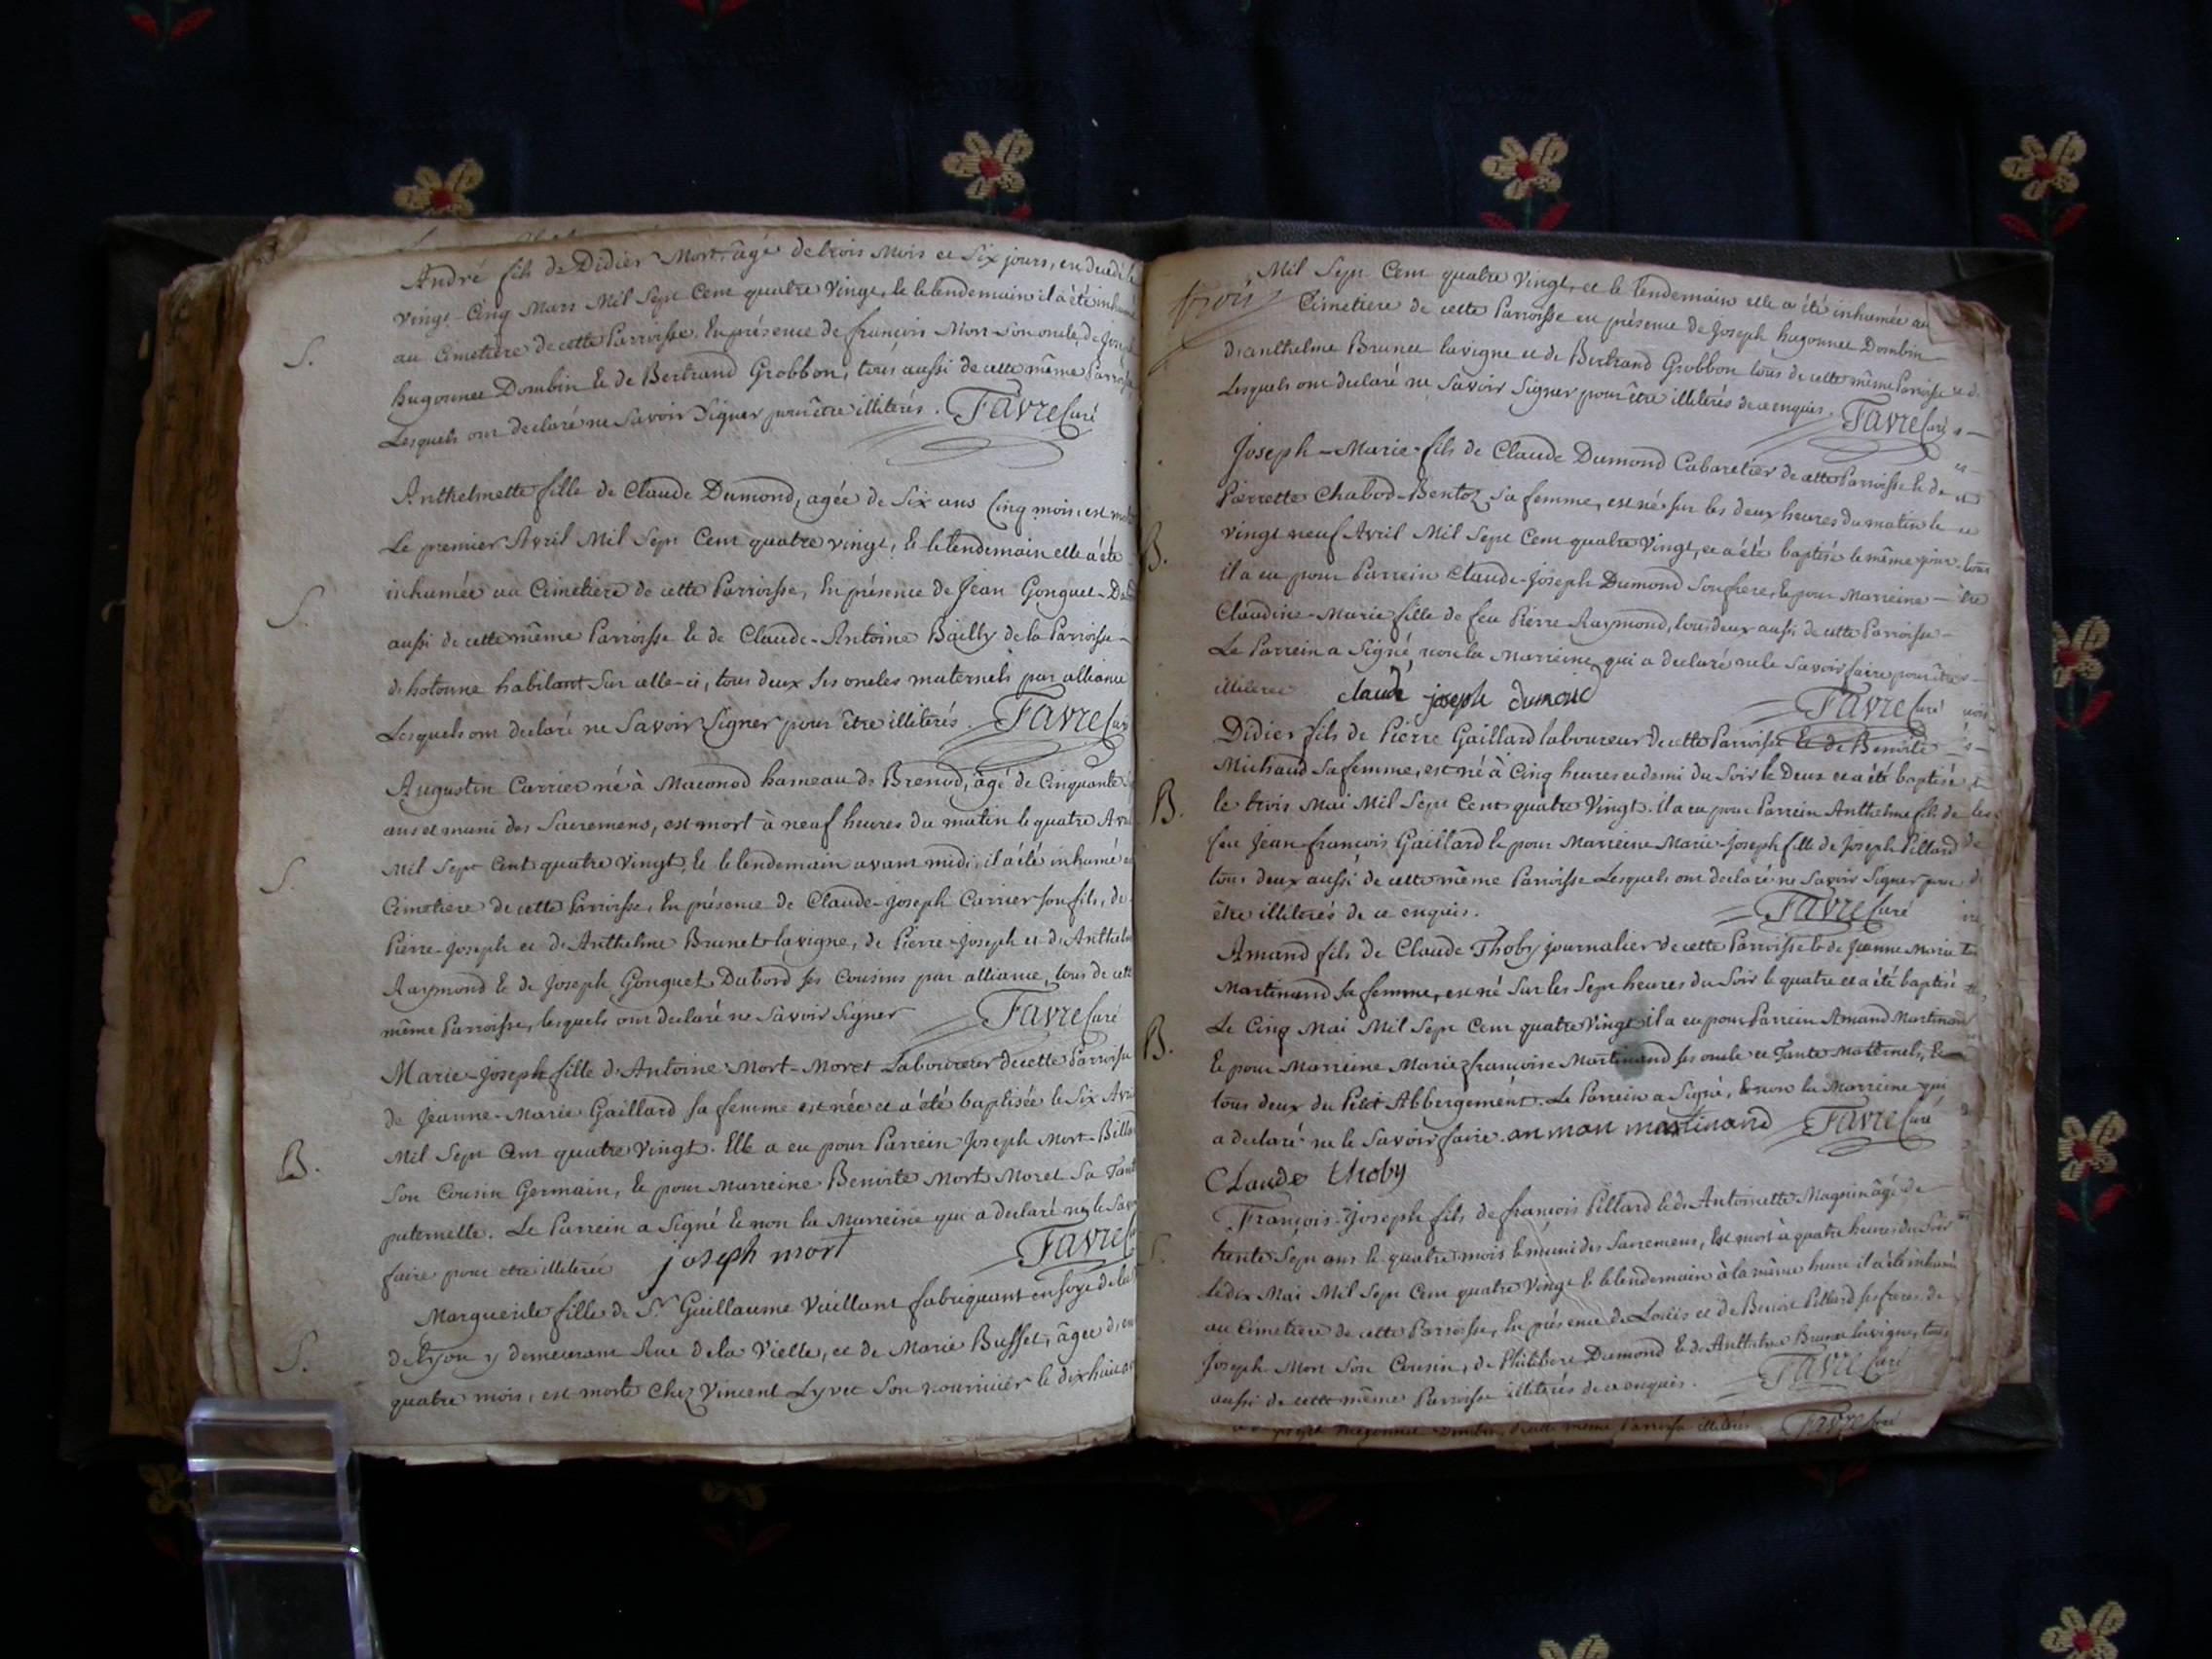 André fils de Didier Mort, âgé de trois Mois et Six jours, en decedé le
vingt-Cinq Mars Mil Sept Cent quatre Vingt, & le lendemain il a été inhumé
au Cimetiere de cette Parroisse, En présence de francois Mort son oncle, de Joseph
S.
hugonnet Dombin & de Bertrand Grobbon, tous aussi de cette même Parroisse
Lesquels ont declaré ne Savoir Signer pour être illiterés. Favre Curé
Anthelmette fille de Claude Dumond, agée de Six ans Cinq mois, est morte
Le premier Avril Mil Sept Cent quatre vingt, & le lendemain elle a été
inhumée au Cimetiere de cette Parroisse, En présence de Jean Gonguet-
S.
aussi de cette même Parroisse & de Claude-Antoine Bailly de la Parroisse
d'hotonne habitant Sur celle-ci, tous deux Ses oncles maternels par alliance
Lesquels ont declaré ne Savoir Signer pour être illiterés. Favre Curé
Augustin Carrier né à Maconod hameau de Brenod, âgé de Cinquante
ans et muni des Sacremens, est mort à neuf heures du matin le quatre Avril
Mil Sept Cent quatre vingt, & le lendemain avant midi, il a été inhumé au
S.
Cimetiere de cette Parroisse, En présence de Claude-Joseph Carrier son fils, de
Pierre-Joseph et d'Anthelme Brunet-lavigne, de Pierre-Joseph et d'Anthelme
Raymond & de Joseph Gonguet Dubord ses Cousins par alliance, tous de cette
même Parroisse, lesquels ont declaré ne Savoir Signer Favre Curé
Marie-Joseph fille d'Antoine Mort-Moret Laboureur de cette Parroisse
de Jeanne-Marie Gaillard sa femme est née et a été baptisée le Six Avril
Mil Sept Cent quatre Vingt. Elle a eu pour Parrein Joseph Mort-
B.
Son Cousin Germain, & pour Marreine Benoite Mort Moret Sa Tante
paternelle. Le Parrein a Signé & non la Marreine qui a declaré ne le Savoir
faire pour etre illiterée joseph mort Favre Curé
Marguerite fille de Sr Guillaume Vaillant fabriquant en soye de la
de Lyon y demeurant Rue de la Vielle, et de Marie Busset, âgée d'
S.
quatre mois, est morte Chez Vincent Lyvet Son nourricier le dixhuit
Mil Sept Cent quatre Vingt, et le lendemain elle a été inhumée au
trois
Cimetiere de cette Parroisse en présence de Joseph hugonnet Dombin
d'anthelme Brunet lavigne et de Bertrand Grobbon tous de cette même Parroisse
Lesquels ont declaré ne Savoir Signer pour être illiterés de ce enquis. Favre Curé
Joseph-Marie fils de Claude Dumond Cabaretier de cette Parroisse & de
Pierrette Chabod-Bentoz sa femme, est né sur les deux heures du matin le
vingt neuf Avril Mil Sept Cent quatre Vingt, et a été baptisé le même jour
B.
il a eu pour Parrein Claude-Joseph Dumond Son frere, & pour Marreine
Claudine-Marie fille de feu Pierre Raymond, tous deux aussi de cette Parroisse
Le Parrein a Signé, non la Marreine, qui a declaré ne le Savoir faire pour être
illiterée claude joseph dumond Favre Curé
Didier fils de Pierre Gaillard laboureur de cette Parroisse & de Benoite
Michaud sa femme, est né à Cinq heures et demi du Soir le Deux et a été baptisé
B.
le trois Mai Mil Sept Cent quatre Vingt. il a eu pour Parrein Anthelme fils de
feu Jean-francois Gaillard & pour Marreine Marie-Joseph fille de Joseph Pillard
tous deux aussi de cette même Parroisse Lesquels ont declaré ne Savoir Signer pour
être illiterés de ce enquis. Favre Curé
Amand fils de Claude Thoby journalier de cette Parroisse & de Jeanne Marie
Martinand sa femme, est né Sur les Sept heures du Soir le quatre et a été baptisé
Le Cinq Mai Mil Sept Cent quatre Vingt il a eu pour Parrein Amand Martinand
B.
& pour Marreine Marie francoise Martinand ses oncle et Tante Maternels, &
tous deux du Petit Abbergement. Le Parrein a Signé, & non la Marreine qui
a declaré ne le Savoir faire. an man martinand Favre Curé
Claude thoby
Francois-Joseph fils de francois Pillard & de Antoinette Magnin âgé de
trente Sept ans & quatre mois & muni des Sacremens, Est mort à quatre heures du Soir
Le dix Mai Mil Sept Cent quatre Vingt & le lendemain à la même heure il a été inhumé
au Cimetiere de cette Parroisse, En présence de Louis et de Benoit Pillard ses freres, de
Joseph Mort Son Cousin, de Philibert Dumond & de Anthelme Brunet lavigne, tous
aussi de cette même Parroisse illiterés de ce enquis. Favre Curé
hugonnet Dombin, de cette même Parroisse illiterés Favre Curé